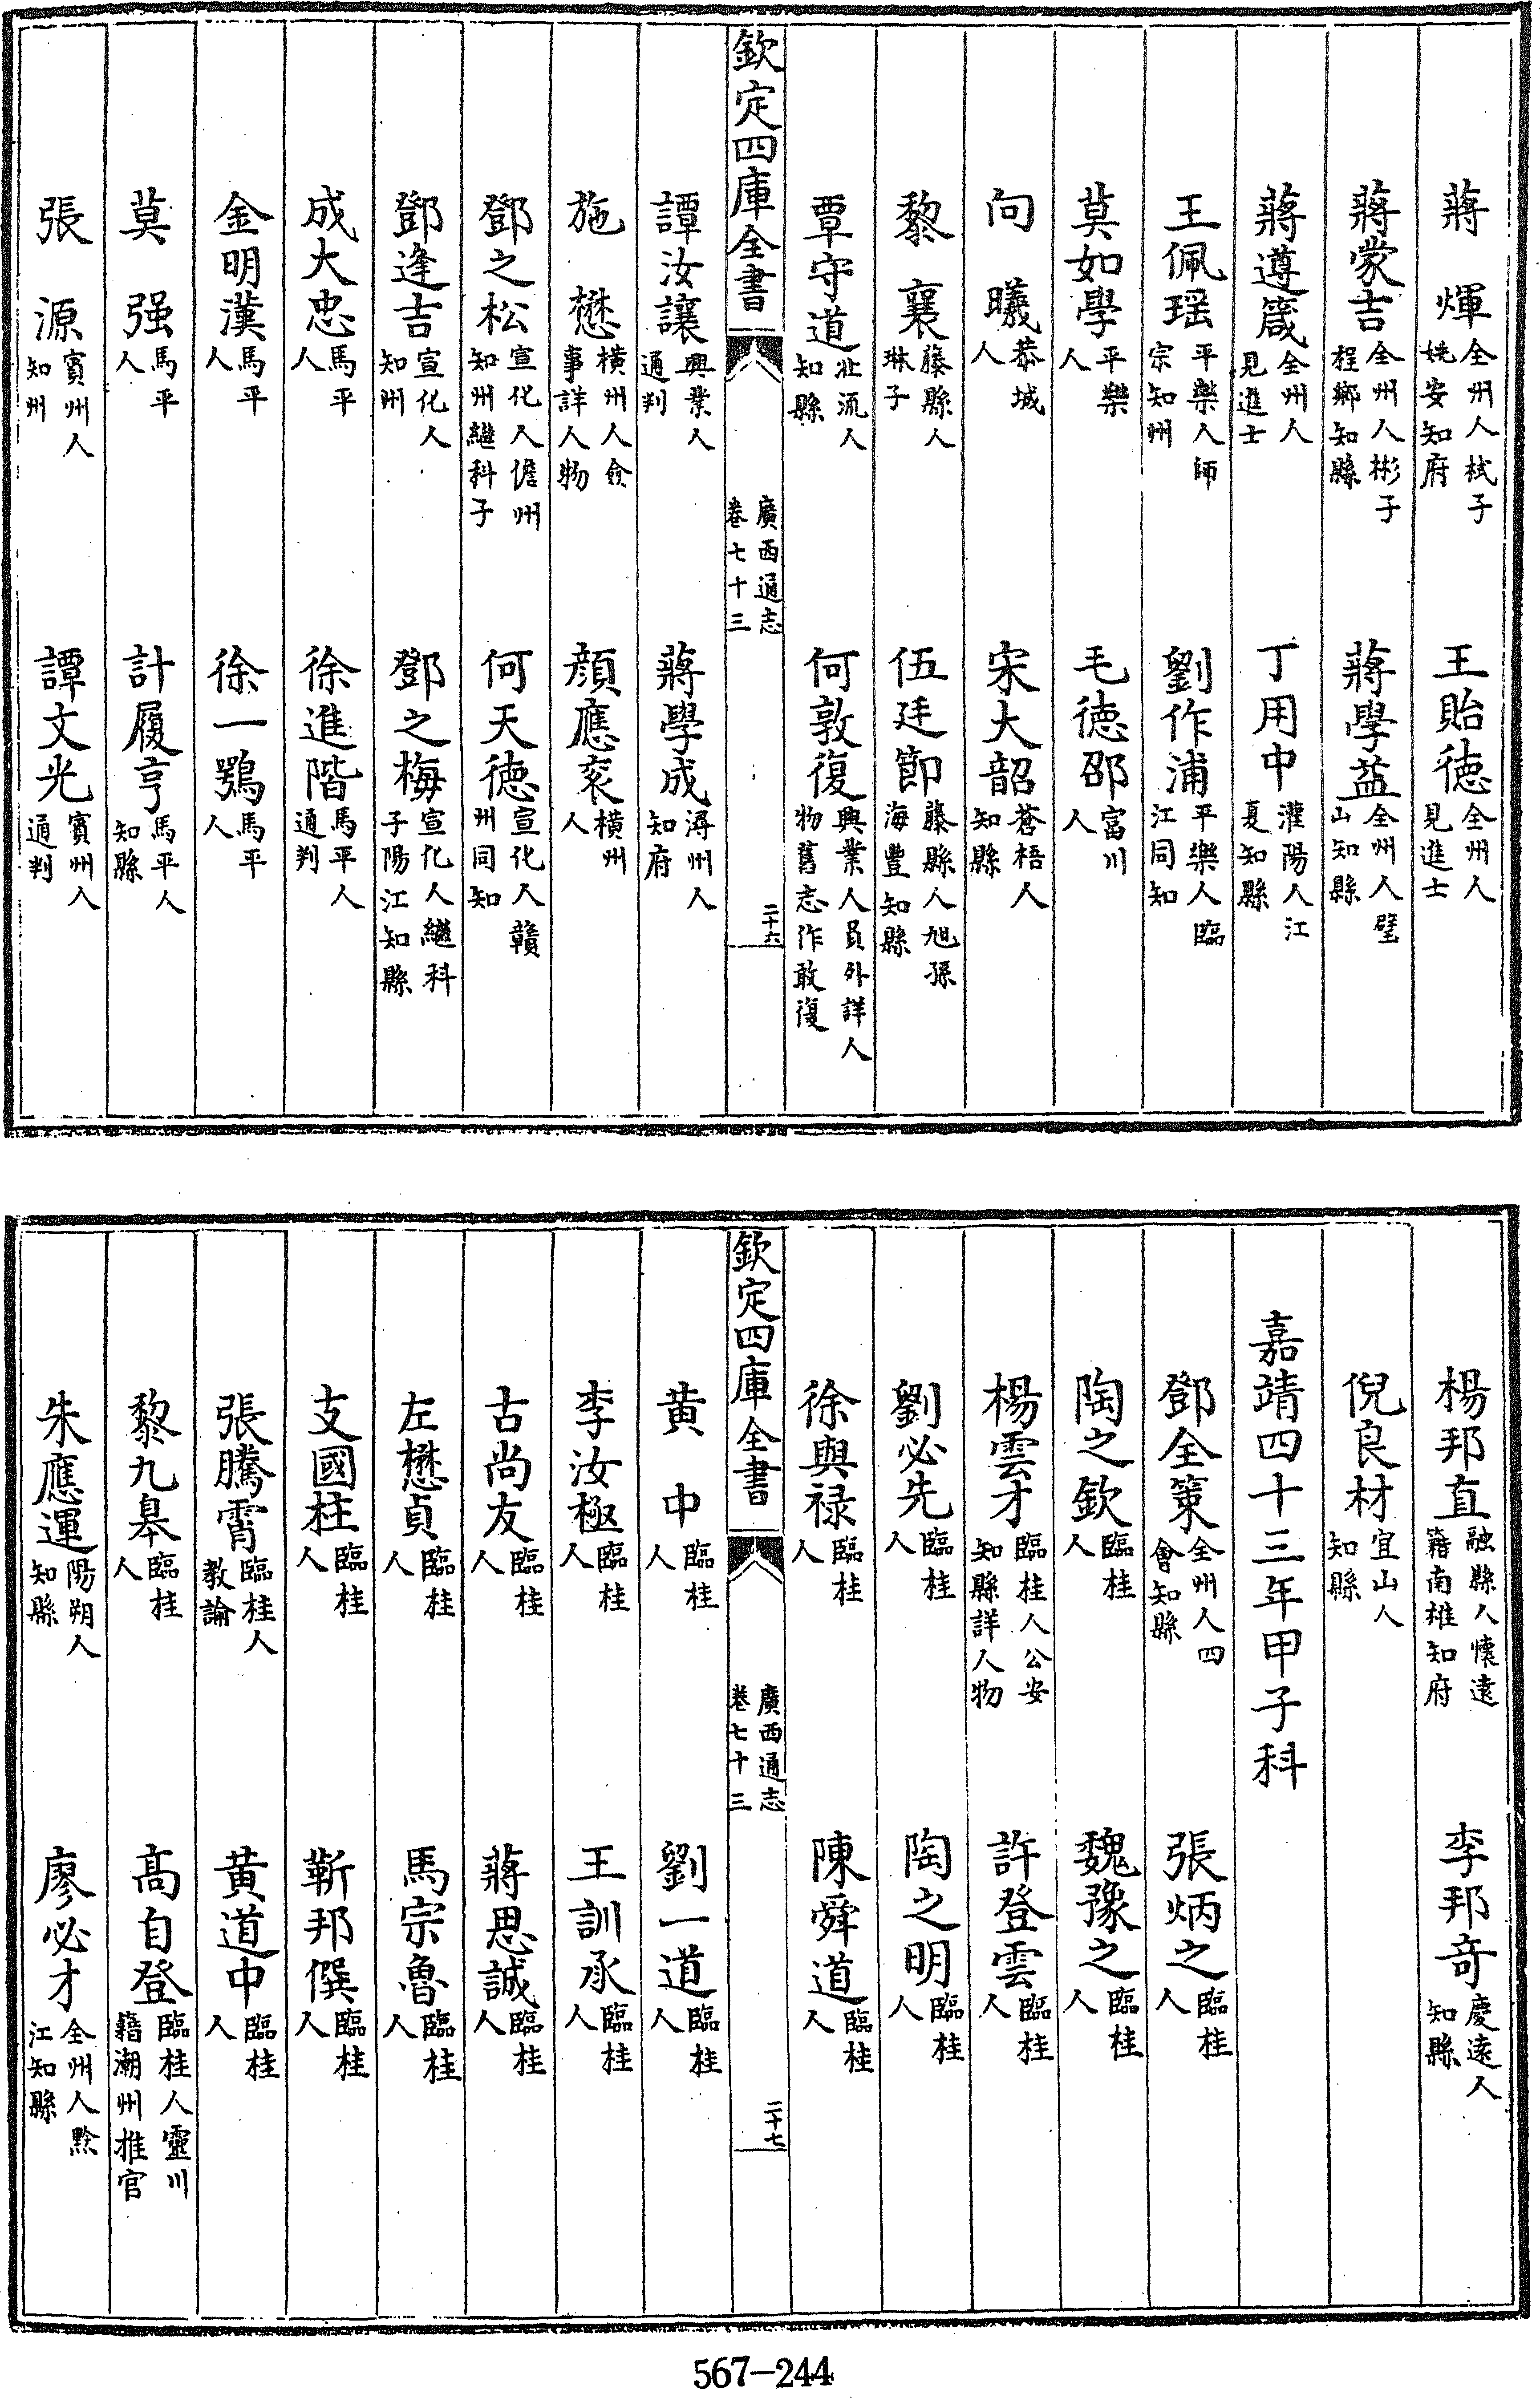 蔣煇全州人栻子姚安知府　王貽徳全州人見進士
蔣蒙吉全州人彬子程鄉知縣　蔣學益全州人璧山知縣
蔣遵箴全州人見進士　丁用中灌陽人江夏知縣
王佩瑶平樂人師宗知州　劉作浦平樂人臨江同知
莫如學平樂人　毛徳邵富川人
向曦恭城人　宋大韶蒼梧人知縣
黎襄藤縣人琳子　伍廷節藤縣人旭孫海豐知縣
覃守道北流人知縣　何敦復興業人員外詳人物舊志作敢復
欽定四庫全書　廣西通志卷七十三　二十六
譚汝讓興業人通判　蔣學成潯州人知府
施懋橫州人僉事詳人物　顏應衮橫州人
鄧之松宣化人儋州知州繼科子　何天徳宣化人贛州同知
鄧逢吉宣化人知州　鄧之梅宣化人繼科子陽江知縣
成大忠馬平人　徐進階馬平人通判
金明漢馬平人　徐一鶚馬平人
莫强馬平人　計履亨馬平人知縣
張源賓州人知州　譚文光賓州人通判
楊邦直融縣人懷遠籍南雄知府　李邦竒慶遠人知縣
倪良材宜山人知縣
嘉靖四十三年甲子科
鄧全策全州人四會知縣　張炳之臨桂人
陶之欽臨桂人　魏豫之臨桂人
楊雲才臨桂人公安知縣詳人物　許登雲臨桂人
劉必先臨桂人　陶之明臨桂人
徐與禄臨桂人　陳舜道臨桂人
欽定四庫全書　廣西通志卷七十三　二十七
黄中臨桂人　劉一道臨桂人
李汝極臨桂人　王訓承臨桂人
古尚友臨桂人　蔣思誠臨桂人
左懋貞臨桂人　馬宗魯臨桂人
支國柱臨桂人　靳邦僎臨桂人
張騰霄臨桂人教諭　黄道中臨桂人
黎九臯臨桂人　髙自登臨桂人靈川籍潮州推官
朱應運陽朔人知縣　廖必才全州人黔江知縣
567-244